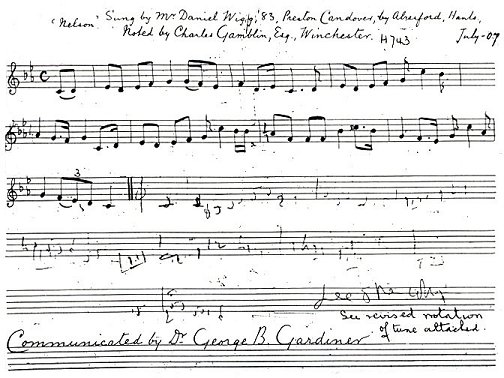 "Nelson." Sung by Mr Daniel Wigg, '83, Preston Candover, by Alresford, Hants,
Noted by Charles Gamblin, Esq., Winchester. H743 July-07
C
3
See revised notation
of tune attached.
Communicated by Dr George B. Gardiner